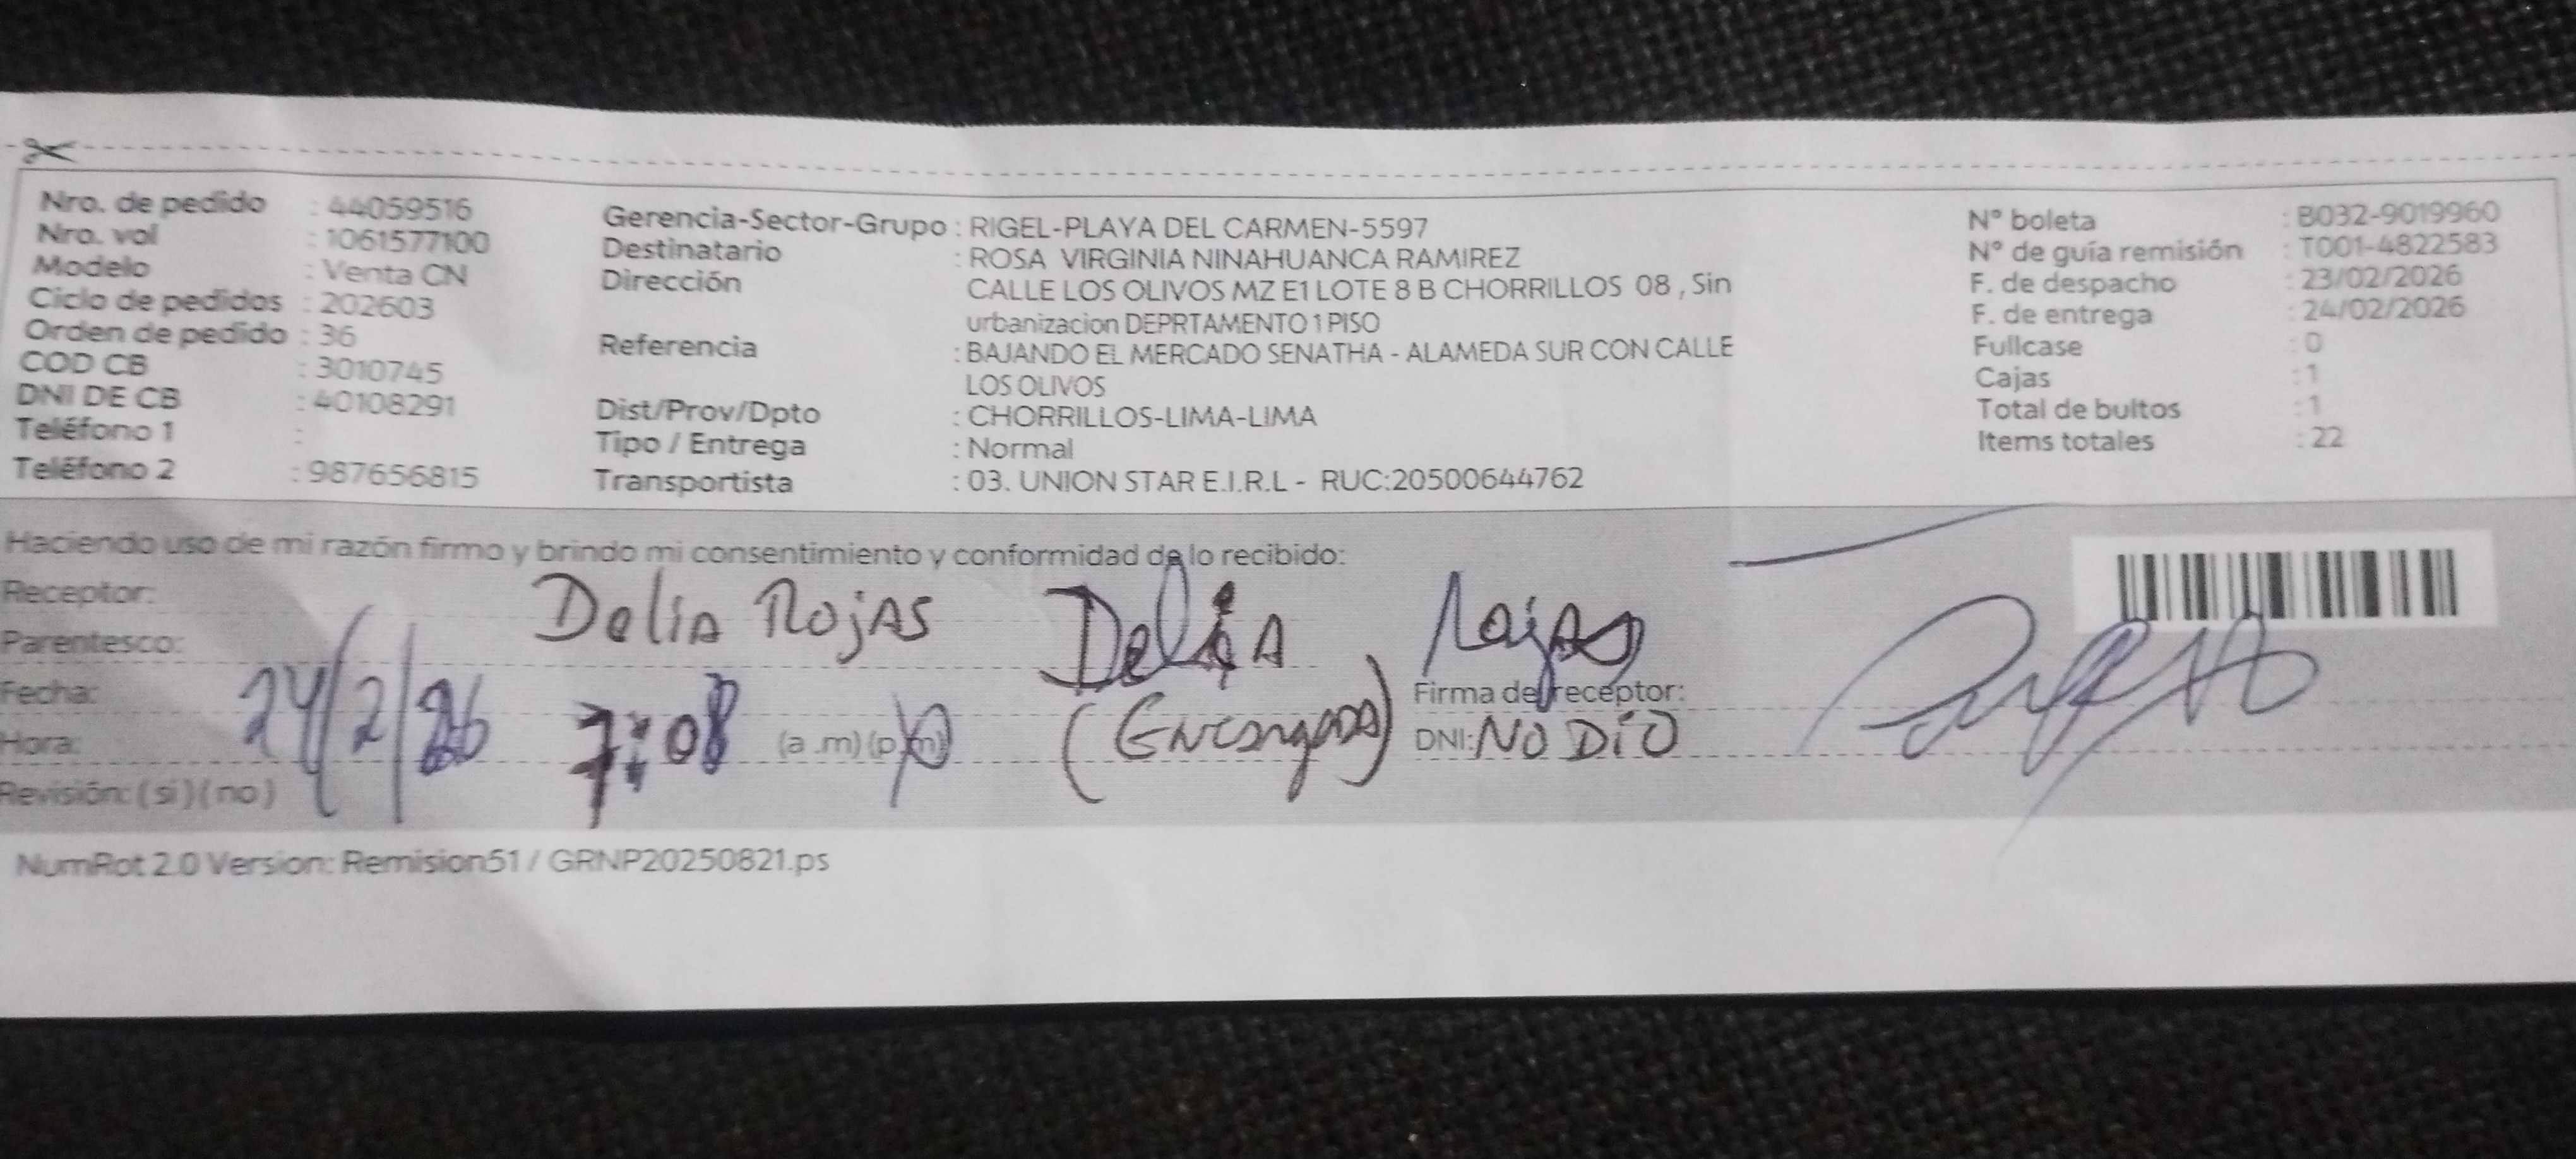 Nro. de pedido : 44059516
Nro. vol : 1061577100
Modelo : Venta CN
Ciclo de pedidos : 202603
Orden de pedido : 36
COD CB : 3010745
DNI DE CB : 40108291
Teléfono 1 :
Teléfono 2 : 987656815
Gerencia-Sector-Grupo : RIGEL-PLAYA DEL CARMEN-5597
Destinatario : ROSA VIRGINIA NINAHUANCA RAMIREZ
Dirección CALLE LOS OLIVOS MZ E1 LOTE 8 B CHORRILLOS 08 , Sin
urbanizacion DEPRTAMENTO 1 PISO
Referencia : BAJANDO EL MERCADO SENATHA - ALAMEDA SUR CON CALLE
LOS OLIVOS
Dist/Prov/Dpto : CHORRILLOS-LIMA-LIMA
Tipo / Entrega : Normal
Transportista : 03. UNION STAR E.I.R.L - RUC:20500644762
N° boleta : B032-9019960
N° de guía remisión : T001-4822583
F. de despacho : 23/02/2026
F. de entrega : 24/02/2026
Fullcase : 0
Cajas : 1
Total de bultos : 1
Items totales : 22
Haciendo uso de mi razón firmo y brindo mi consentimiento y conformidad de lo recibido:
Receptor: Delia Rojas Delia Rojas
Parentesco: (Encargada)
Fecha: 24/2/26
Hora: 7:08 (a .m) (p.m)
Revisión: ( si ) ( no )
Firma del receptor:
DNI: NO DIO
NumRot 2.0 Version: Remision51 / GRNP20250821.ps